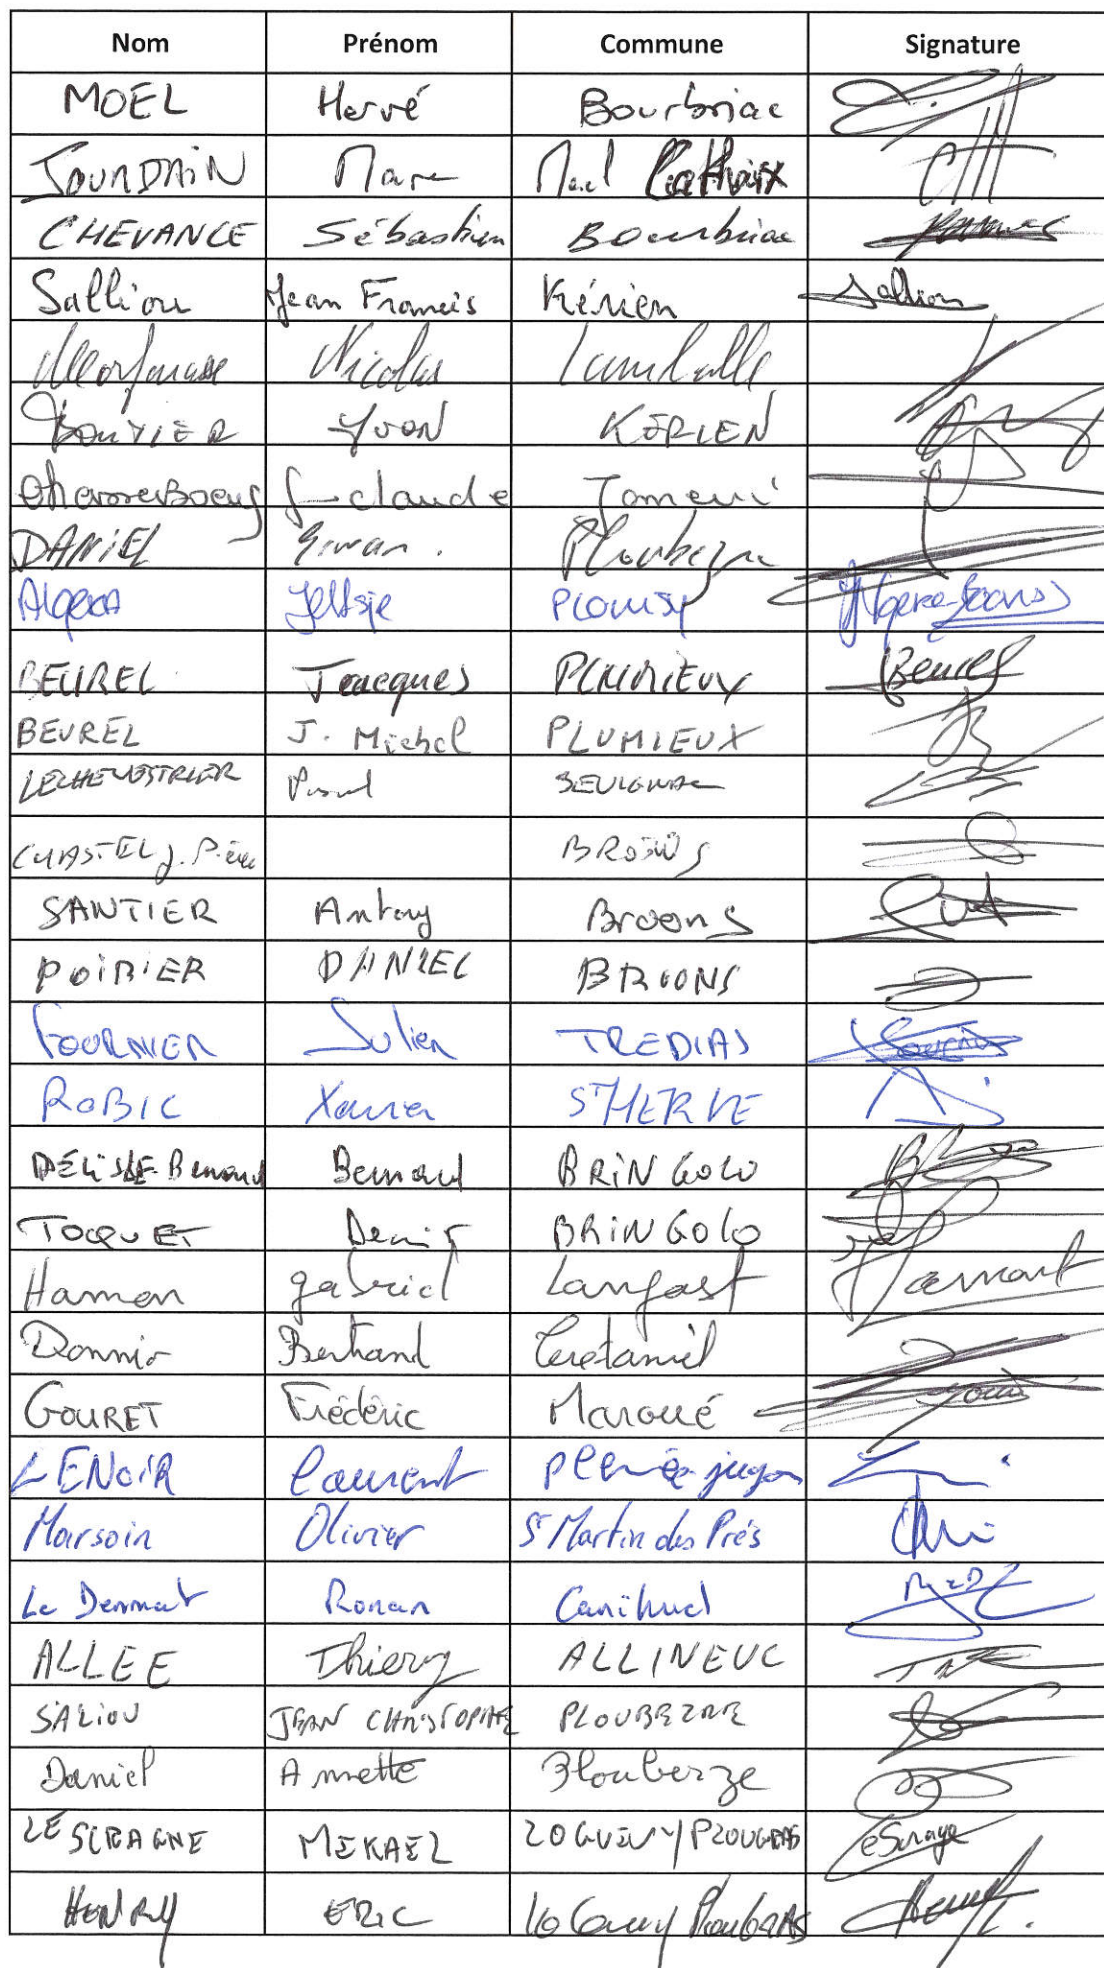 Nom Prénom Commune Signature
MOEL Hervé Bourbriac
JOURDAIN Marc Mael
CHEVANCE Sébastien Bourbriac
Salliou Jean Francis Kérien Salliou
Nicolas Lamballe
Yvon KERIEN
J-claude
DANIEL Erwan. Ploubezre
Algera Jeltsje PLOUISY
BEUREL Jacques PLUMIEUX Beurel
BEUREL J. Michel PLUMIEUX
Pascal SEVIGNAC
CHASTEL J. Pierre BROONS
SANTIER Antony Broons
POIRIER DANIEL BROONS
FOURNIER Julien TREDIAS
ROBIC Xavier ST HERVE
DÉLISLE Bernard Bernard BRINGOLO
TOQUET Denis BRINGOLO
Hamon gabriel Langast
Donnio Bertrand
GOURET Frédéric Maroué
LENOIR Laurent Plénée-jugon
Marsoin Olivier St Martin des Prés
Le Denmat Ronan Canihuel
ALLEE Thierry ALLINEUC
SALIOU JEAN CHRISTOPHE PLOUBEZRE
Daniel Annette Ploubezre
LE SCRAGNE MEKAEL LOGUIVY PLOUGRAS
HENRY ERIC